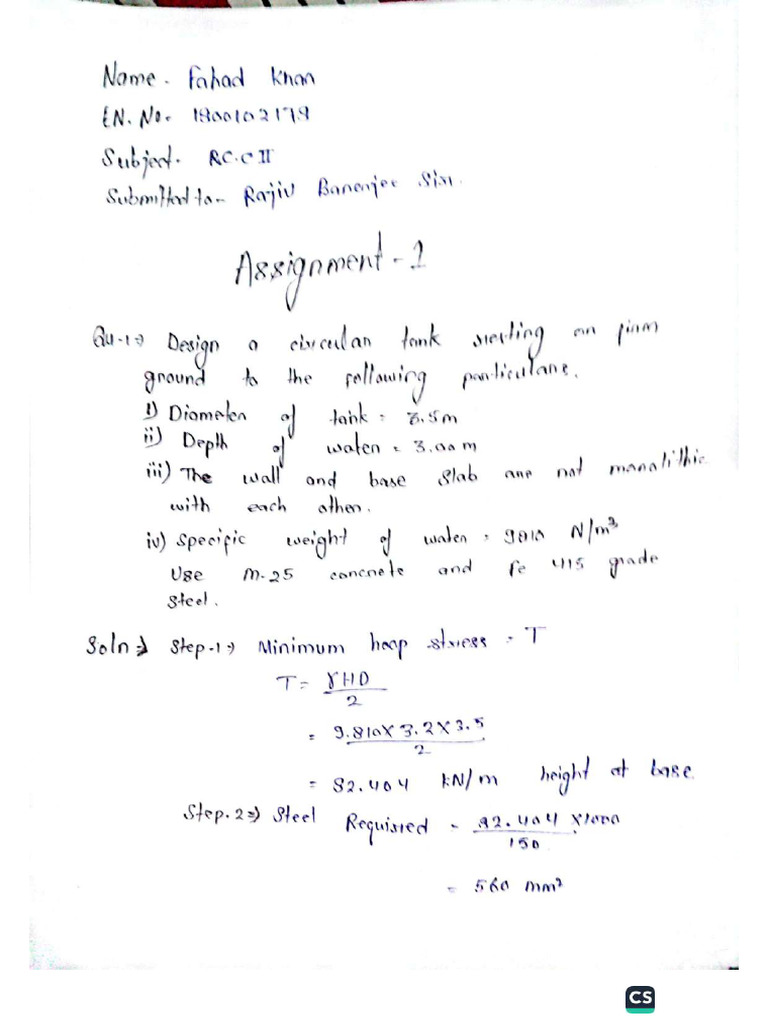 Name - Fahad Khan
EN. No. 1800102178
Subject. R.C.C II
Submitted to - Rajiv Banerjee Sir.
Assignment - 1
Qu-1⇒ Design a circular tank resting on firm
ground to the following particulars.
i) Diameter of tank = 3.5m
ii) Depth of water = 3.00 m
iii) The wall and base slab are not monolithic
with each other.
iv) Specific weight of water = 9810 N/m³
Use M-25 concrete and Fe 415 grade
steel.
Soln⇒ Step-1⇒ Minimum hoop stress = T
T = γHD
2
= 9.810 x 3.2 x 3.5
2
= 82.404 kN/m height at base
Step.2⇒ Steel Required = 82.404 x1000
150
= 560 mm²
CS